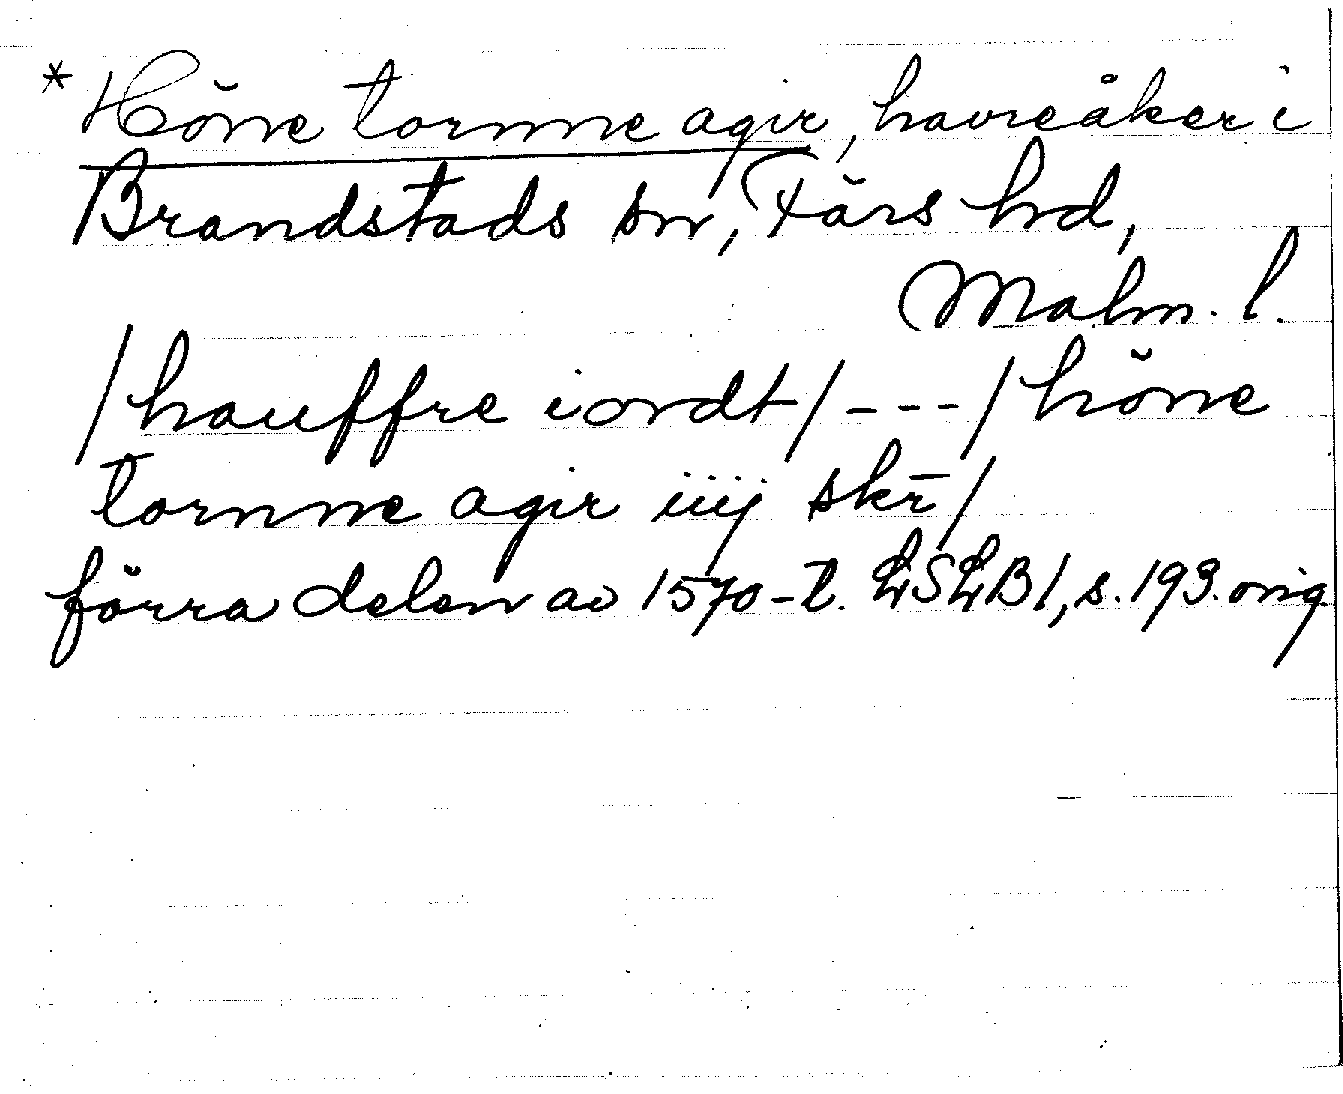 * Höne tornne agir, havreåker i
Brandstads sn, Färs hd,
Malm. l.
/hauffre iordt/---/höne
tornne agir iiij skr̄/
förra delen av 1570-t. LSLB 1, s. 193. orig